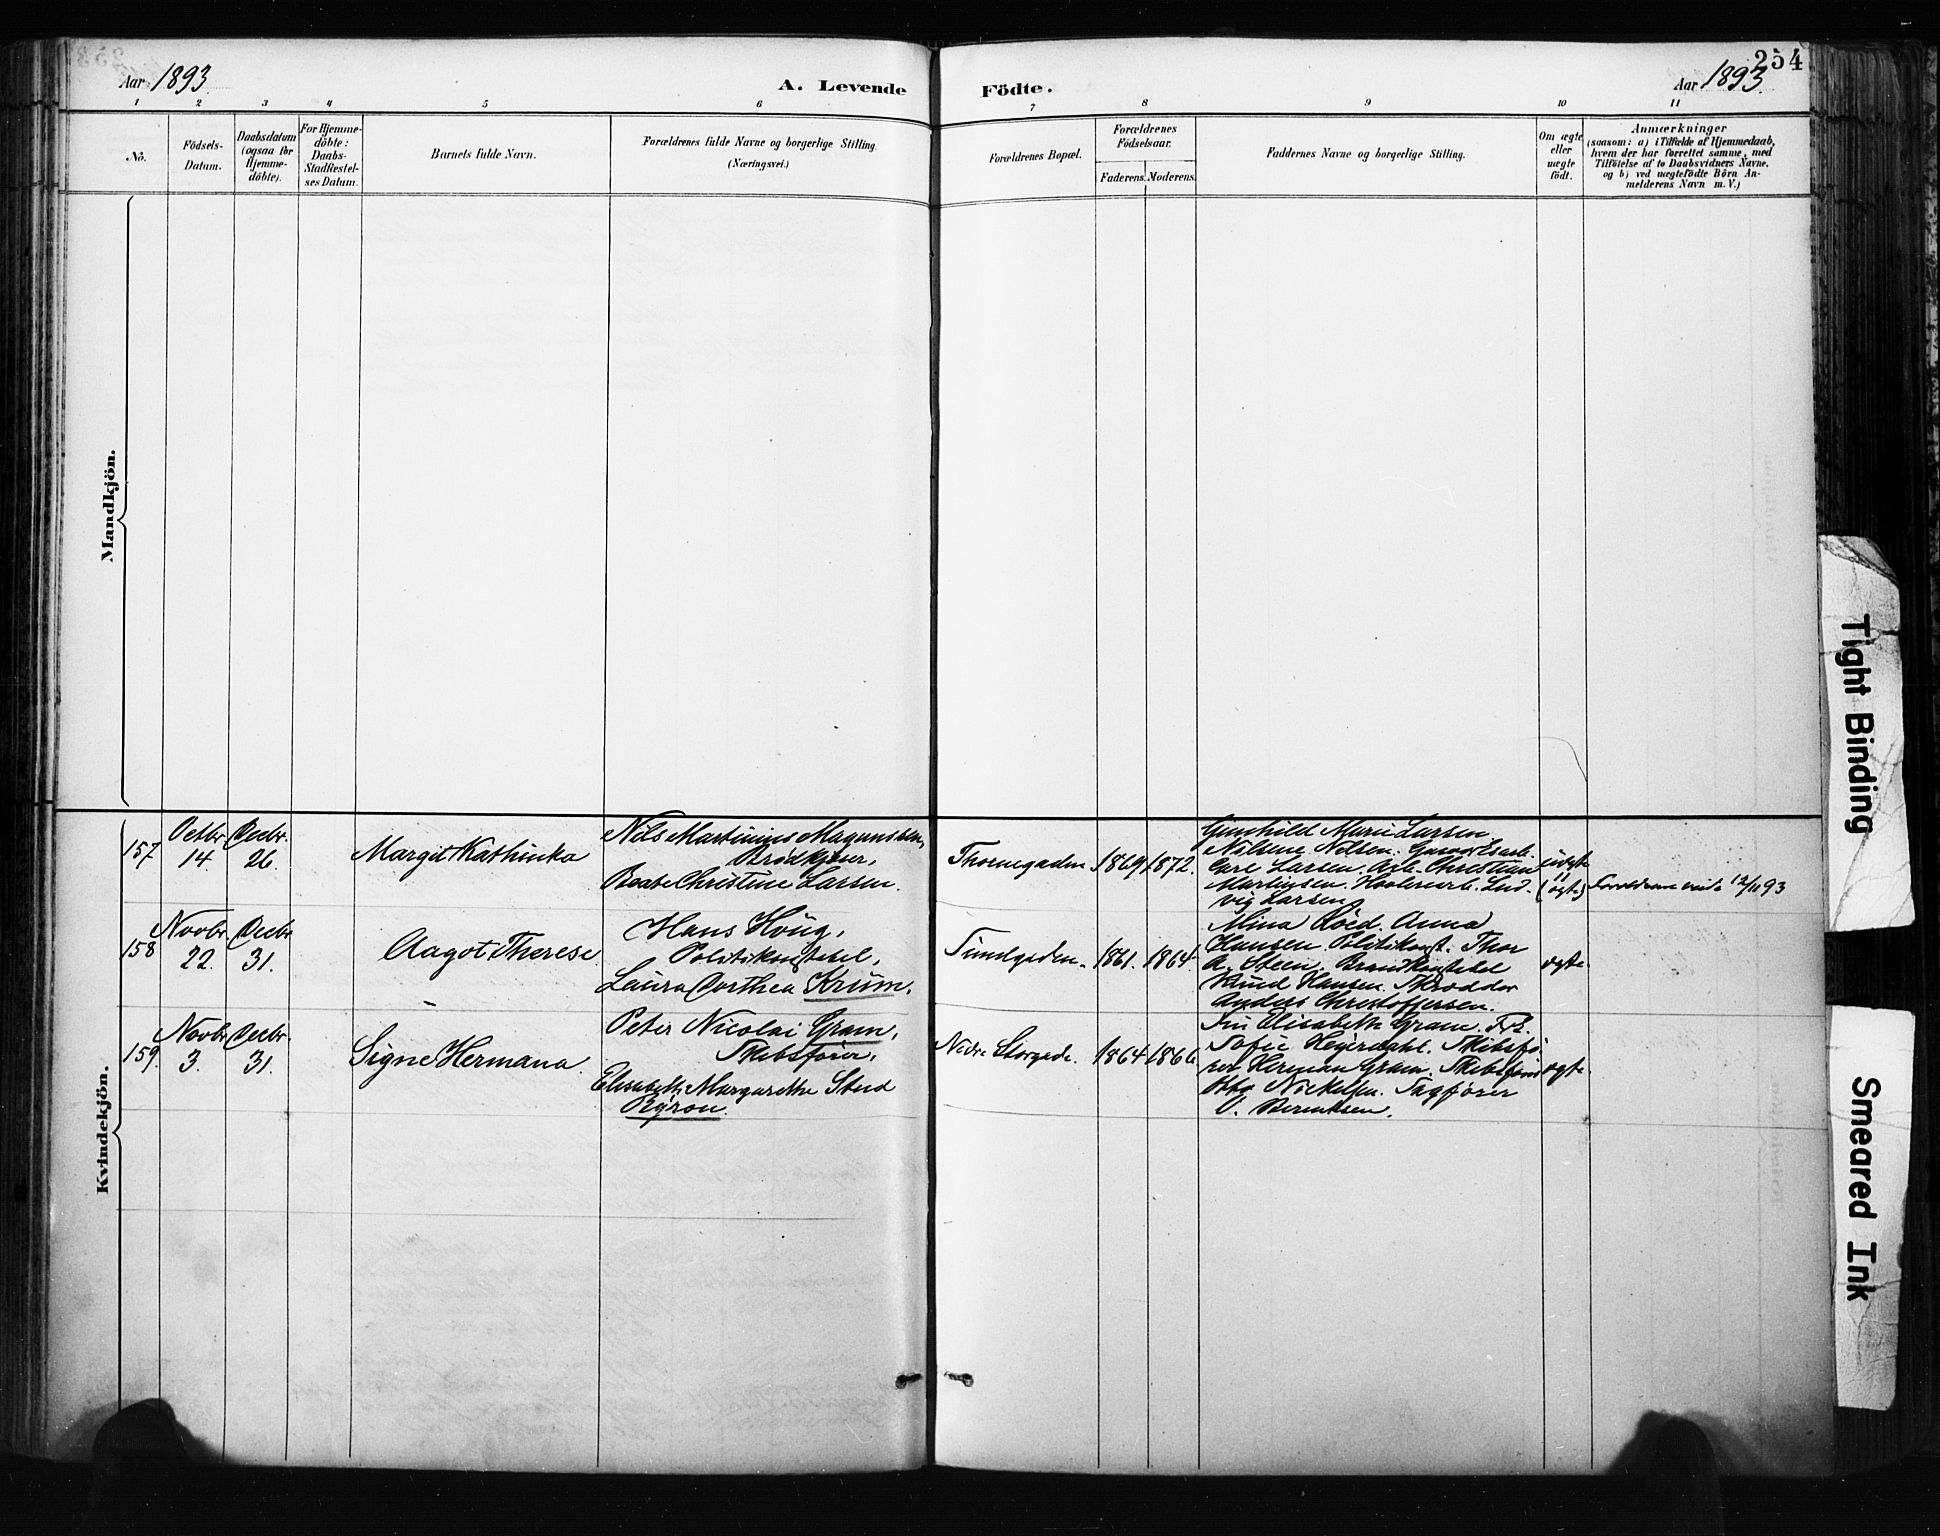 254
Aar 1893
A. Levende Födte.
Aar 1893.
1 2 3 4 5 6 7 8 9 10 11
No.
Födsels-
Datum.
Daabsdatum
(ogsaa for
Hjemme-
döbte).
For Hjemme-
döbte:
Daabs-
Stadfæstel-
ses Datum.
Barnets fulde Navn.
Forældrenes fulde Navne og borgerlige Stilling.
(Næringsvei.)
Forældrenes Bopæl.
Forældrenes
Födselsaar.
Faderens. Moderens.
Faddernes Navne og borgerlige Stilling.
Om ægte
eller
uægte
födt.
Anmærkninger
(saasom: a) i Tilfælde af Hjemmedaab,
hvem der har forrettet samme, med
Tilföielse af to Daabsvidners Navne,
og b) ved uægtefödte Börn An-
melderens Navn m. V.)
Mandkjön.
Kvindekjön.
157
Octbr.
14.
Decbr.
26.
Margit Kathinka
Nils Martinius Magnussen,
Brødkjører,
Beate Christine Larsen.
Thornegaden
1869
1872.
Gunhild Marie Larsen.
Nilsine Nilsen.
Carl Larsen. Arb. Christian
Martinsen. Lud-
vig Larsen.
uægte
(ægte)
12/11 93
158
Novbr.
22.
Decbr.
31.
Aagot Therese.
Hans Höug,
Politikonstabel,
Laura Dorthea Krüm.
1861.
1864.
Mina Röed. Anna
Hansen. Politikonst. Thor
A. Steen. Brandkonstabel
Knud Hansen. Skrædder
Anders Christoffersen.
ægte.
159.
Novbr.
3.
Decbr.
31.
Signe Hermana.
Peter Nicolai Gram,
Skibsfører,
Elisabeth Margarethe Stud
Byron.
Nedre Storgade.
1864
1866
Elisabeth Gram. Frk.
Sofie Heyerdahl. Skibsfø-
rer Herman Gram. Skibsfører
Otto Nickelsen. Tagfører
O. Berentsen.
ægte
Tight Binding
Smeared Ink